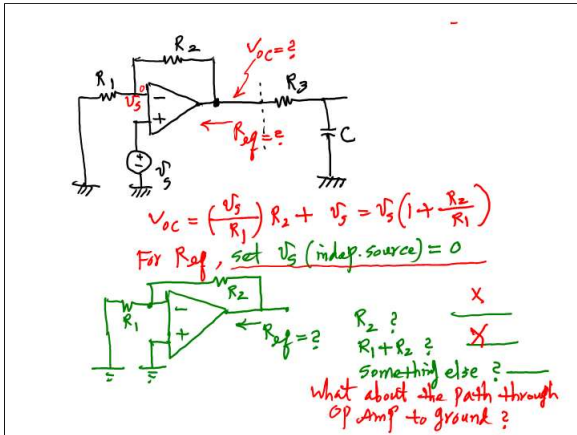 R2
VOC = ?
R1
R3
vs
−
+
Req = ?
C
+
−
vs
VOC = (vs/R1) R2 + vs = vs(1 + R2/R1)
For Req, set vs (indep. source) = 0
R2
R1
−
+
Req = ?
R2 ? X
R1 + R2 ? X
Something else ?
What about the path through
OP Amp to ground ?